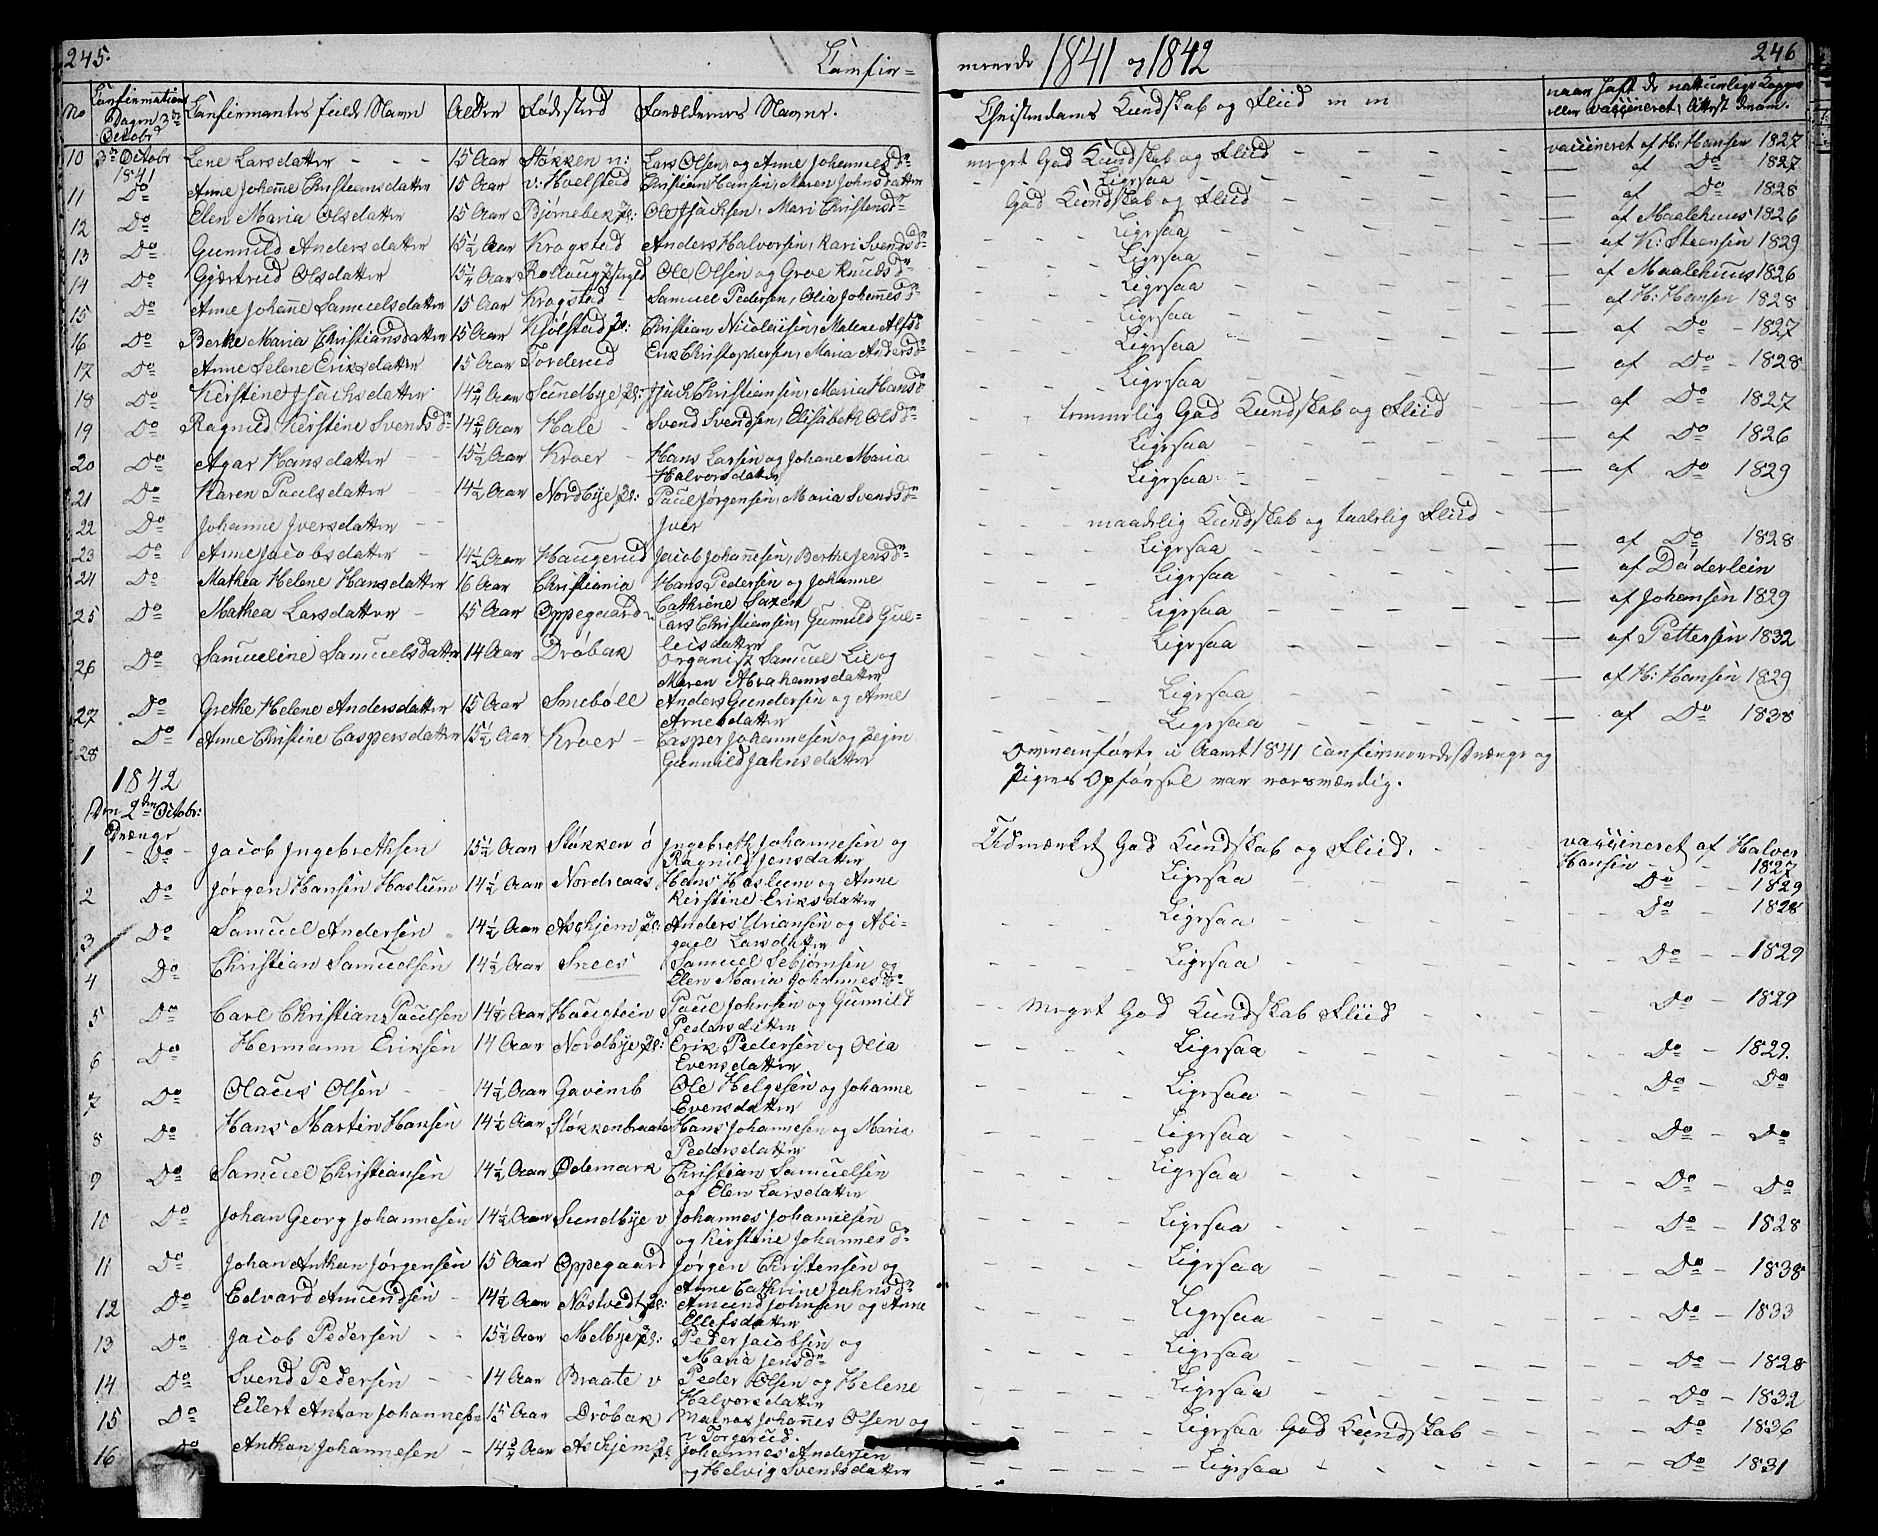 245.
Confir=
No Confirmations Dagen 3die Octobr Confirmantes fulde Navn Alder Fødested Forældrenes Navne.
10 3die Octobr 1841 Lene Larsdatter - - - 15 Aar Støkken n: Lars Olsen og Anne Johannesdr
11 Do Anne Johanne Christiansdatter 15 Aar v: Hoelstad Christian Hansen, Maren Johnsdatter
12 Do Elen Maria Olsdatter 15 Aar Bjørnebek Pl: Ole Isachsen, Mari Christensdr
13 Do Gunnild Andersdatter 15½ Aar Krogstad Anders Halvorsen, Kari Svendsdr
14 Do Gjærtrud Olsdatter 15½ Aar Rollaug Ole Olsen og Groe Knudsdr
15 Do Anne Johanne Samuelsdatter 15 Aar Krogstad - Samuel Pedersen, Olia Johannesdr
16 Do Berthe Maria Christiansdatter 15 Aar Kjølstad Pl: Christian Nicolaisen, Malene Alfsdr
17 Do Anne Selene Eriksdatter 15 Aar Torderud Erik Christophersen, Maria Andersdr
18 Do Kirstine Isachsdatter 14¾ Aar Sundbye Pl: Isach Christiansen, Maria Hansdr
19 Do Ragnild Kirstine Svendsdr 14¾ Aar Hale - Svend Svendsen, Elisabeth Olsdr
20 Do Agar Hansdatter - - 15½ Aar Kroer - Hans Larsen og Johane Maria Halvorsdatter
21 Do Karen Paulsdatter - 14½ Aar Nordbye Pl: Paul Jørgensen, Maria Svendsdr
22 Do Johanne Iversdatter - - Iver
23 Do Anne Jacobsdatter - 14½ Aar Haugerud Jacob Johannesen, Berthe Jensdr
24 Do Mathea Helene Hansdatter 16 Aar Christiania Hans Pedersen og Johanne Cathrine Saxen
25 Do Mathea Larsdatter - 15 Aar Oppegaard n Lars Christiansen, Gunnild Gulleisdatter
26 Do Samueline Samuelsdatter 14 Aar Drøbak Organist Samuel Lie og Maren Abrahamsdatter
27 Do Grethe Helene Andersdatter 15 Aar Smebøll Anders Gundersen og Anne Arnesdatter
28 Do Anne Christine Caspersdatter 15½ Aar Kroer - Casper Johannesen og Gunnild Jahnsdatter
1842
Den 2den Octobr:
Drenge
1 Do Jacob Ingebrethsen 15½ Aar Støkken ø Ingebreth Johannesen og Ragnild Jensdatter
2 Do Jørgen Hansen Haslum 14½ Aar Nordreaas Hans Haslum og Anne Kirstine Eriksdatter
3 Do Samuel Andersen - 14½ Aar Aschjem Pl: Anders Uriansen og Abigael Larsdatter
4 Do Christian Samuelsen 14½ Aar Snees Samuel Sebjørnsen og Elen Maria Johannesdr
5 Do Carl Christian Paulsen 14½ Aar Haugstein Paul Johnsen og Gunnild Pedersdatter
6 Do Hermann Eriksen 14 Aar Nordbye Pl: Erik Pedersen og Olia Evensdatter
7 Do Olaus Olsen - - 14½ Aar Gavimb Ole Helgesen og Johanne Evensdatter
8 Do Hans Martin Hansen 14½ Aar Støkkenbraate Hans Johannesen og Maria Pedersdatter
9 Do Samuel Christiansen 14½ Aar Ødemark Christian Samuelsen og Elen Larsdatter
10 Do Johan Georg Johannesen 14½ Aar Sundbye v Johannes Johannesen og Kirstine Johannesdr
11 Do Johan Anthon Jørgensen 15 Aar Oppegaard Jørgen Christensen og Anne Cathrine Jahnsdr
12 Do Edvard Amundsen - 14½ Aar Nøstvedt Pl: Amund Johnsen og Anne Ellefsdatter
13 Do Jacob Pedersen - - 15½ Aar Melbye Pl: Peder Jacobsen og Maria Jensdr
14 Do Svend Pedersen - - 14 Aar Braate v Peder Olsen og Helene Halvorsdatter
15 Do Eilert Anton Johannesen 15 Aar Drøbak Matros Johannes Olsen og n Torgerud.
16 Do Anthon Johannesen - 14¾ Aar Aschjem Pl Johannes Andersen og Helvig Svendsdatter
merede 1841 og 1842
246
Christendoms Kundskab og Fliid m m
naar haft de naturlige Kopper
eller vaccineret, Attest derom.
meget God Kundskab og Fliid - - - vaccineret af H: Hansen 1827
Ligesaa - - af Do 1827
God Kundskab og Fliid - - af Do 1828
Ligesaa - - af Maalehuus 1826
Ligesaa - - af K: Steensen 1829
Ligesaa - - af Maalehuus 1826
Ligesaa - - af H: Hansen 1828
Ligesaa - - af Do - 1827
Ligesaa - - af Do - 1828
temmelig God Kundskab og Fliid - af Do 1827
Ligesaa - - af Do 1826
Ligesaa - - af Do 1829
maadelig Kundskab og taalelig Fliid -
Ligesaa - - af Do 1828
Ligesaa - - af Däderlein
Ligesaa - - af Johansen 1829
Ligesaa - - af Pettersen 1832
Ligesaa - - af H: Hansen 1829
Ligesaa - - af Do 1838
Ovenanførte i Aaret 1841 confirmerede Drenge og
Pigers Opførsel var sædvændig.
Udmærket God Kundskab og Fliid. - - vaccineret af Halver Hansen - 1827
Ligesaa - - Do - 1829
Ligesaa - - Do - 1828
Ligesaa - - Do - 1829
Meget God Kundskab Fliid - - Do - 1829
Ligesaa - - Do - 1829.
Ligesaa - - Do - Do
Ligesaa - - Do - Do
Ligesaa - - Do - Do
Ligesaa - - Do - 1828
Ligesaa - - Do - 1838
Ligesaa - - Do - 1833
Ligesaa - - Do - 1828
Ligesaa - - Do - 1832
Ligesaa God Kundskab - - Do - 1836
Ligesaa - - Do - 1831